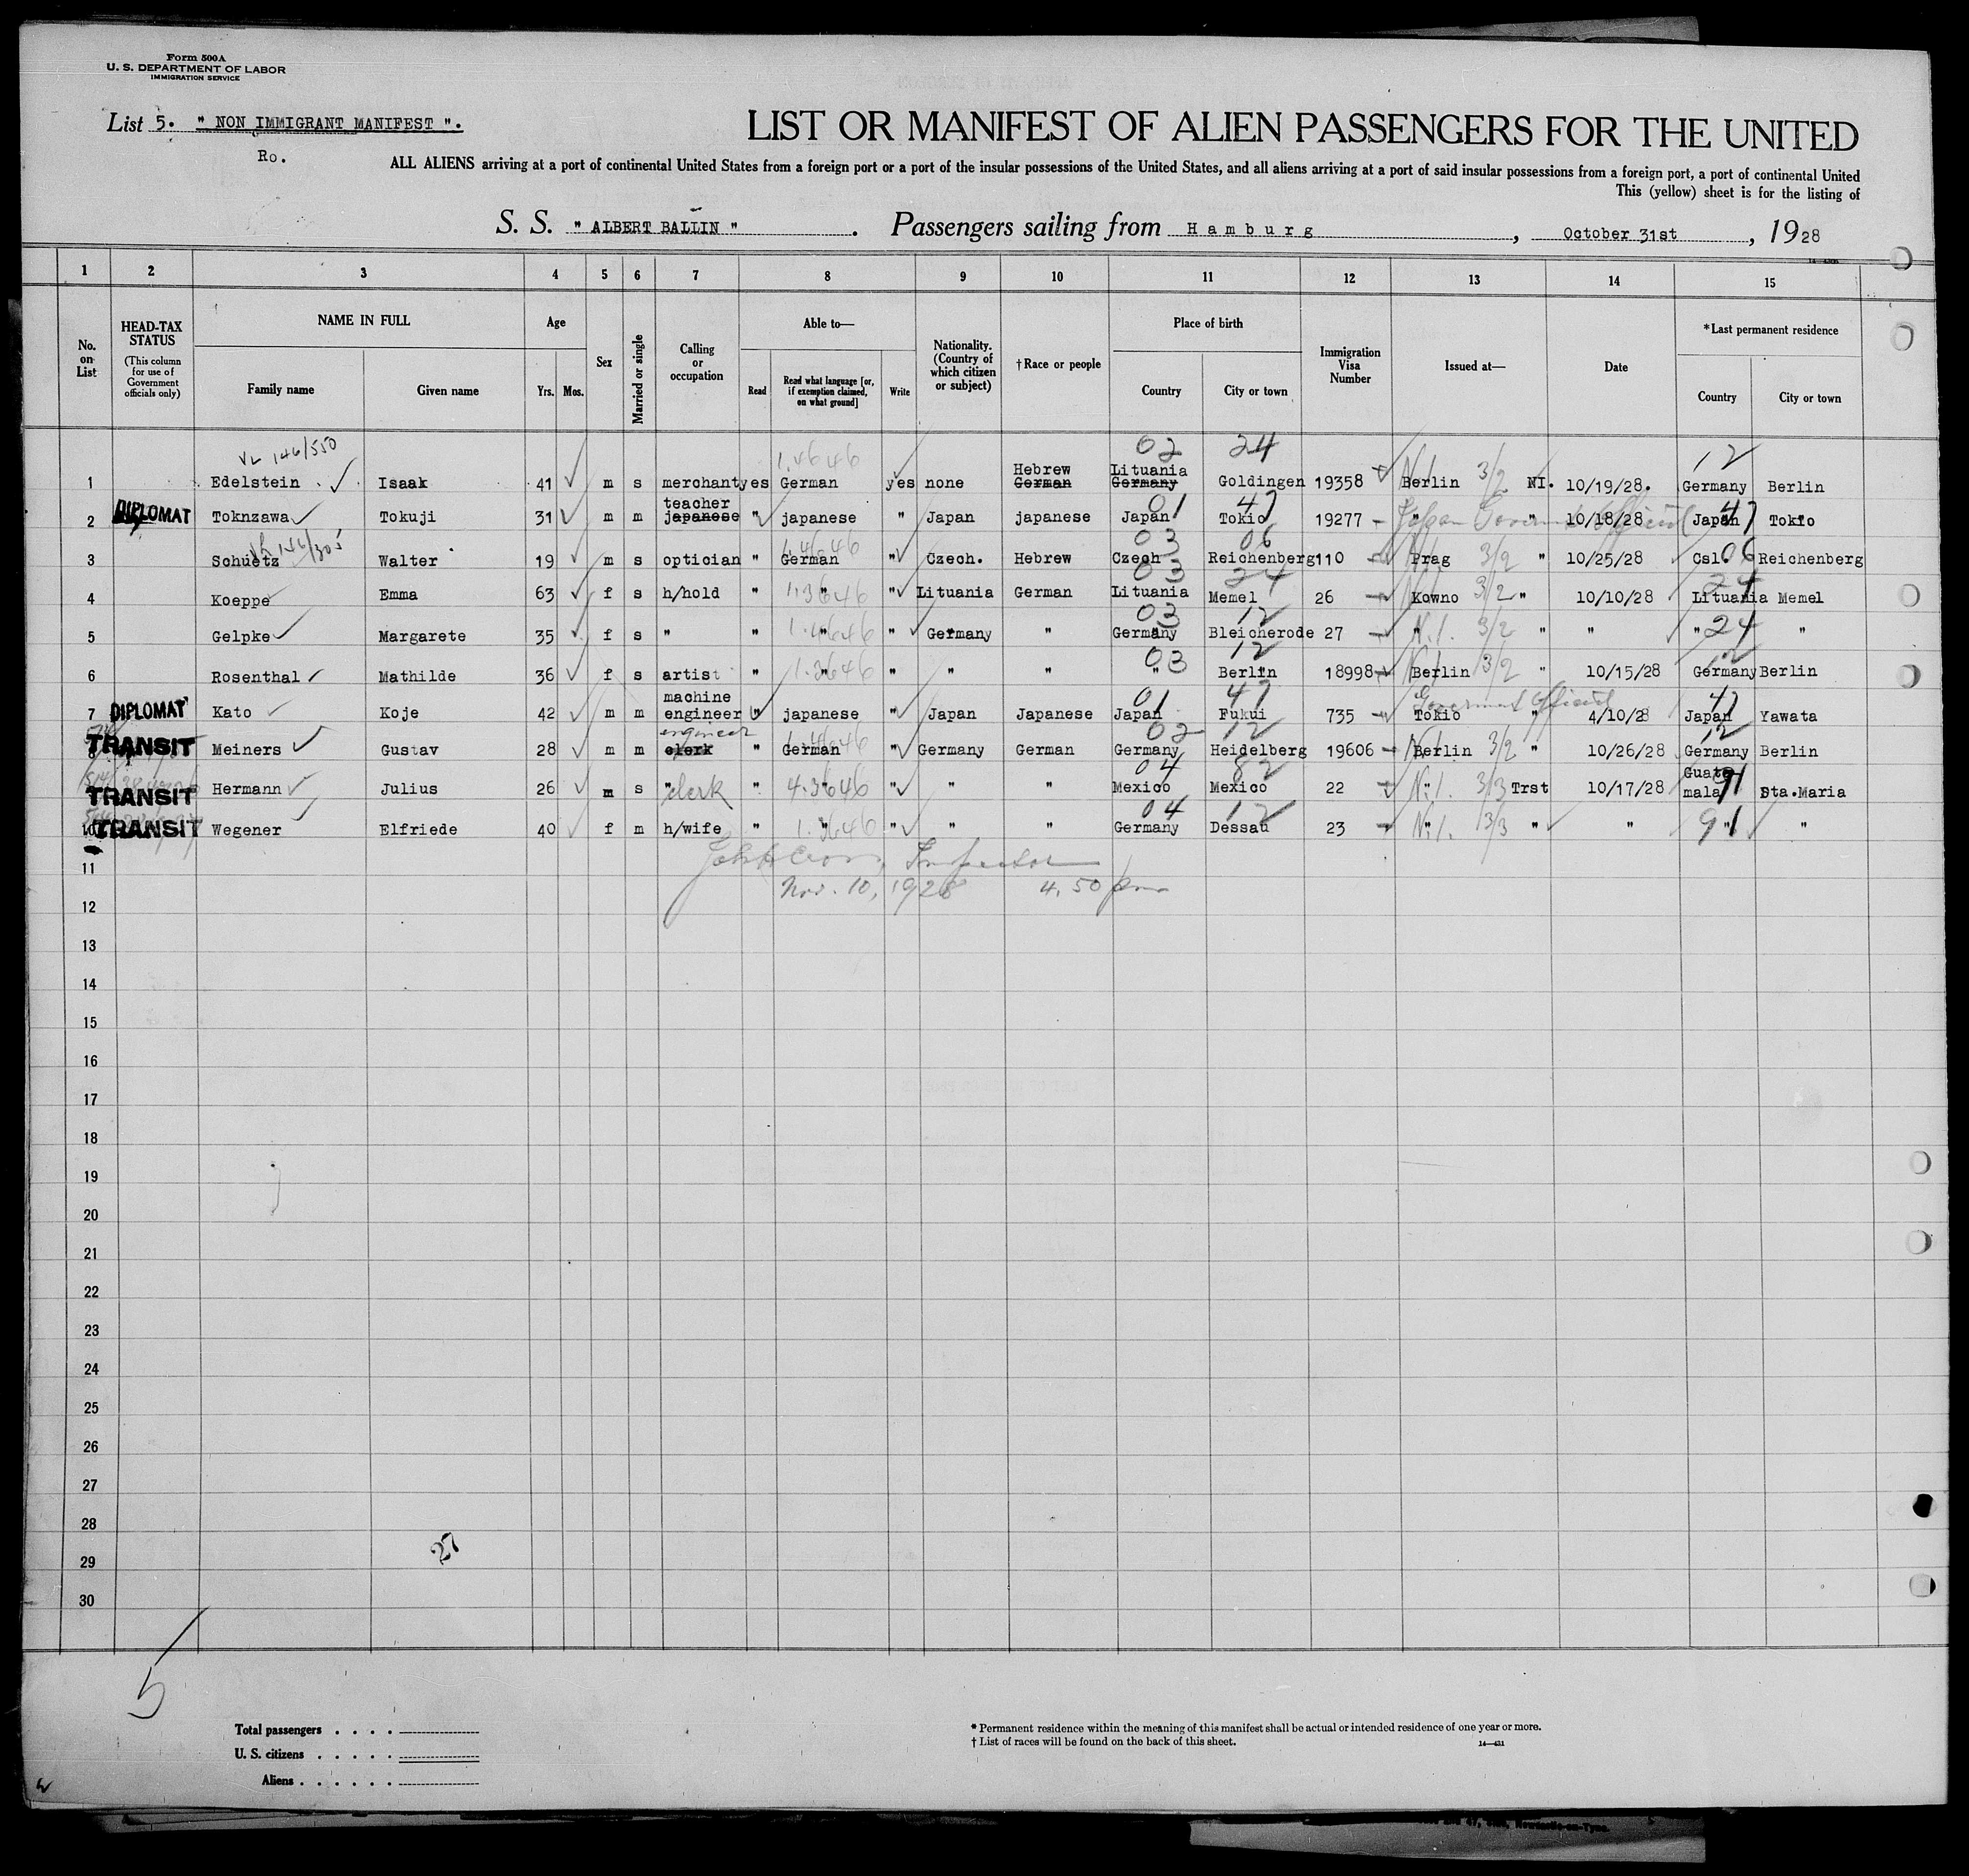 Form 500A
U. S. DEPARTMENT OF LABOR
IMMIGRATION SERVICE
List 5. " NON IMMIGRANT MANIFEST ".
Ro.
LIST OR MANIFEST OF ALIEN PASSENGERS FOR THE UNITED
ALL ALIENS arriving at a port of continental United States from a foreign port or a port of the insular possessions of the United States, and all aliens arriving at a port of said insular possessions from a foreign port, a port of continental United
This (yellow) sheet is for the listing of
S. S. " ALBERT BALLIN " . Passengers sailing from Hamburg , October 31st , 1928
1 2 3 4 5 6 7 8 9 10 11 12 13 14 15
No. on List
HEAD-TAX STATUS
(This column for use of Government officials only)
NAME IN FULL
Family name Given name
Age
Yrs. Mos.
Sex
Married or single
Calling or occupation
Able to—
Read Read what language [or, if exemption claimed, on what ground] Write
Nationality. (Country of which citizen or subject)
†Race or people
Place of birth
Country City or town
Immigration Visa Number
Issued at—
Date
*Last permanent residence
Country City or town
VL 146/550 1.4646 Hebrew Lituania 02 24 12
1 Edelstein Isaak 41 m s merchant yes German yes none German Germany Goldingen 19358 Berlin 3/2 NI. 10/19/28. Germany Berlin
teacher 01 47 47
2 DIPLOMAT Toknzawa Tokuji 31 m m japanese " japanese " Japan japanese Japan Tokio 19277 " Japan Government Official " 10/18/28 Japan Tokio
146/305 1.4646 03 06 06
3 Schuetz Walter 19 m s optician " German " Czech. Hebrew Czech Reichenberg 110 Prag 3/2 " 10/25/28 Csl. Reichenberg
03 24 24
4 Koeppe Emma 63 f s h/hold " " 1.3646 " Lituania German Lituania Memel 26 Kowno 3/2 " 10/10/28 Lituania Memel
03 12 24
5 Gelpke Margarete 35 f s " " " 1.4646 " Germany " Germany Bleicherode 27 " N.I. 3/2 " " " "
03 12 12
6 Rosenthal Mathilde 36 f s artist " " 1.3646 " " " " Berlin 18998 Berlin 3/2 " 10/15/28 Germany Berlin
machine 01 47 Government Official 47
7 DIPLOMAT Kato Koje 42 m m engineer " japanese " Japan Japanese Japan Fukui 735 Tokio " 4/10/28 Japan Yawata
engineer 02 12 12
8 TRANSIT Meiners Gustav 28 m m clerk " German " Germany German Germany Heidelberg 19606 Berlin 3/2 " 10/26/28 Germany Berlin
04 82 91
TRANSIT Hermann Julius 26 m s " clerk " " 4.3646 " " " Mexico Mexico 22 " N.I. 3/3 Trst 10/17/28 Guatemala Sta.Maria
04 12 91
10 TRANSIT Wegener Elfriede 40 f m h/wife " " 1.3646 " " " Germany Dessau 23 " N.I. 3/3 " " " "
11 Inspector
Nov. 10, 1928 4.50 pm
12
13
14
15
16
17
18
19
20
21
22
23
24
25
26
27
28
29
27
30
5
Total passengers
U. S. citizens
Aliens
* Permanent residence within the meaning of this manifest shall be actual or intended residence of one year or more.
† List of races will be found on the back of this sheet.